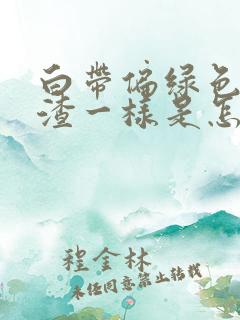 白带偏绿色
渣一样是怎
程金林
未经同意禁止转载